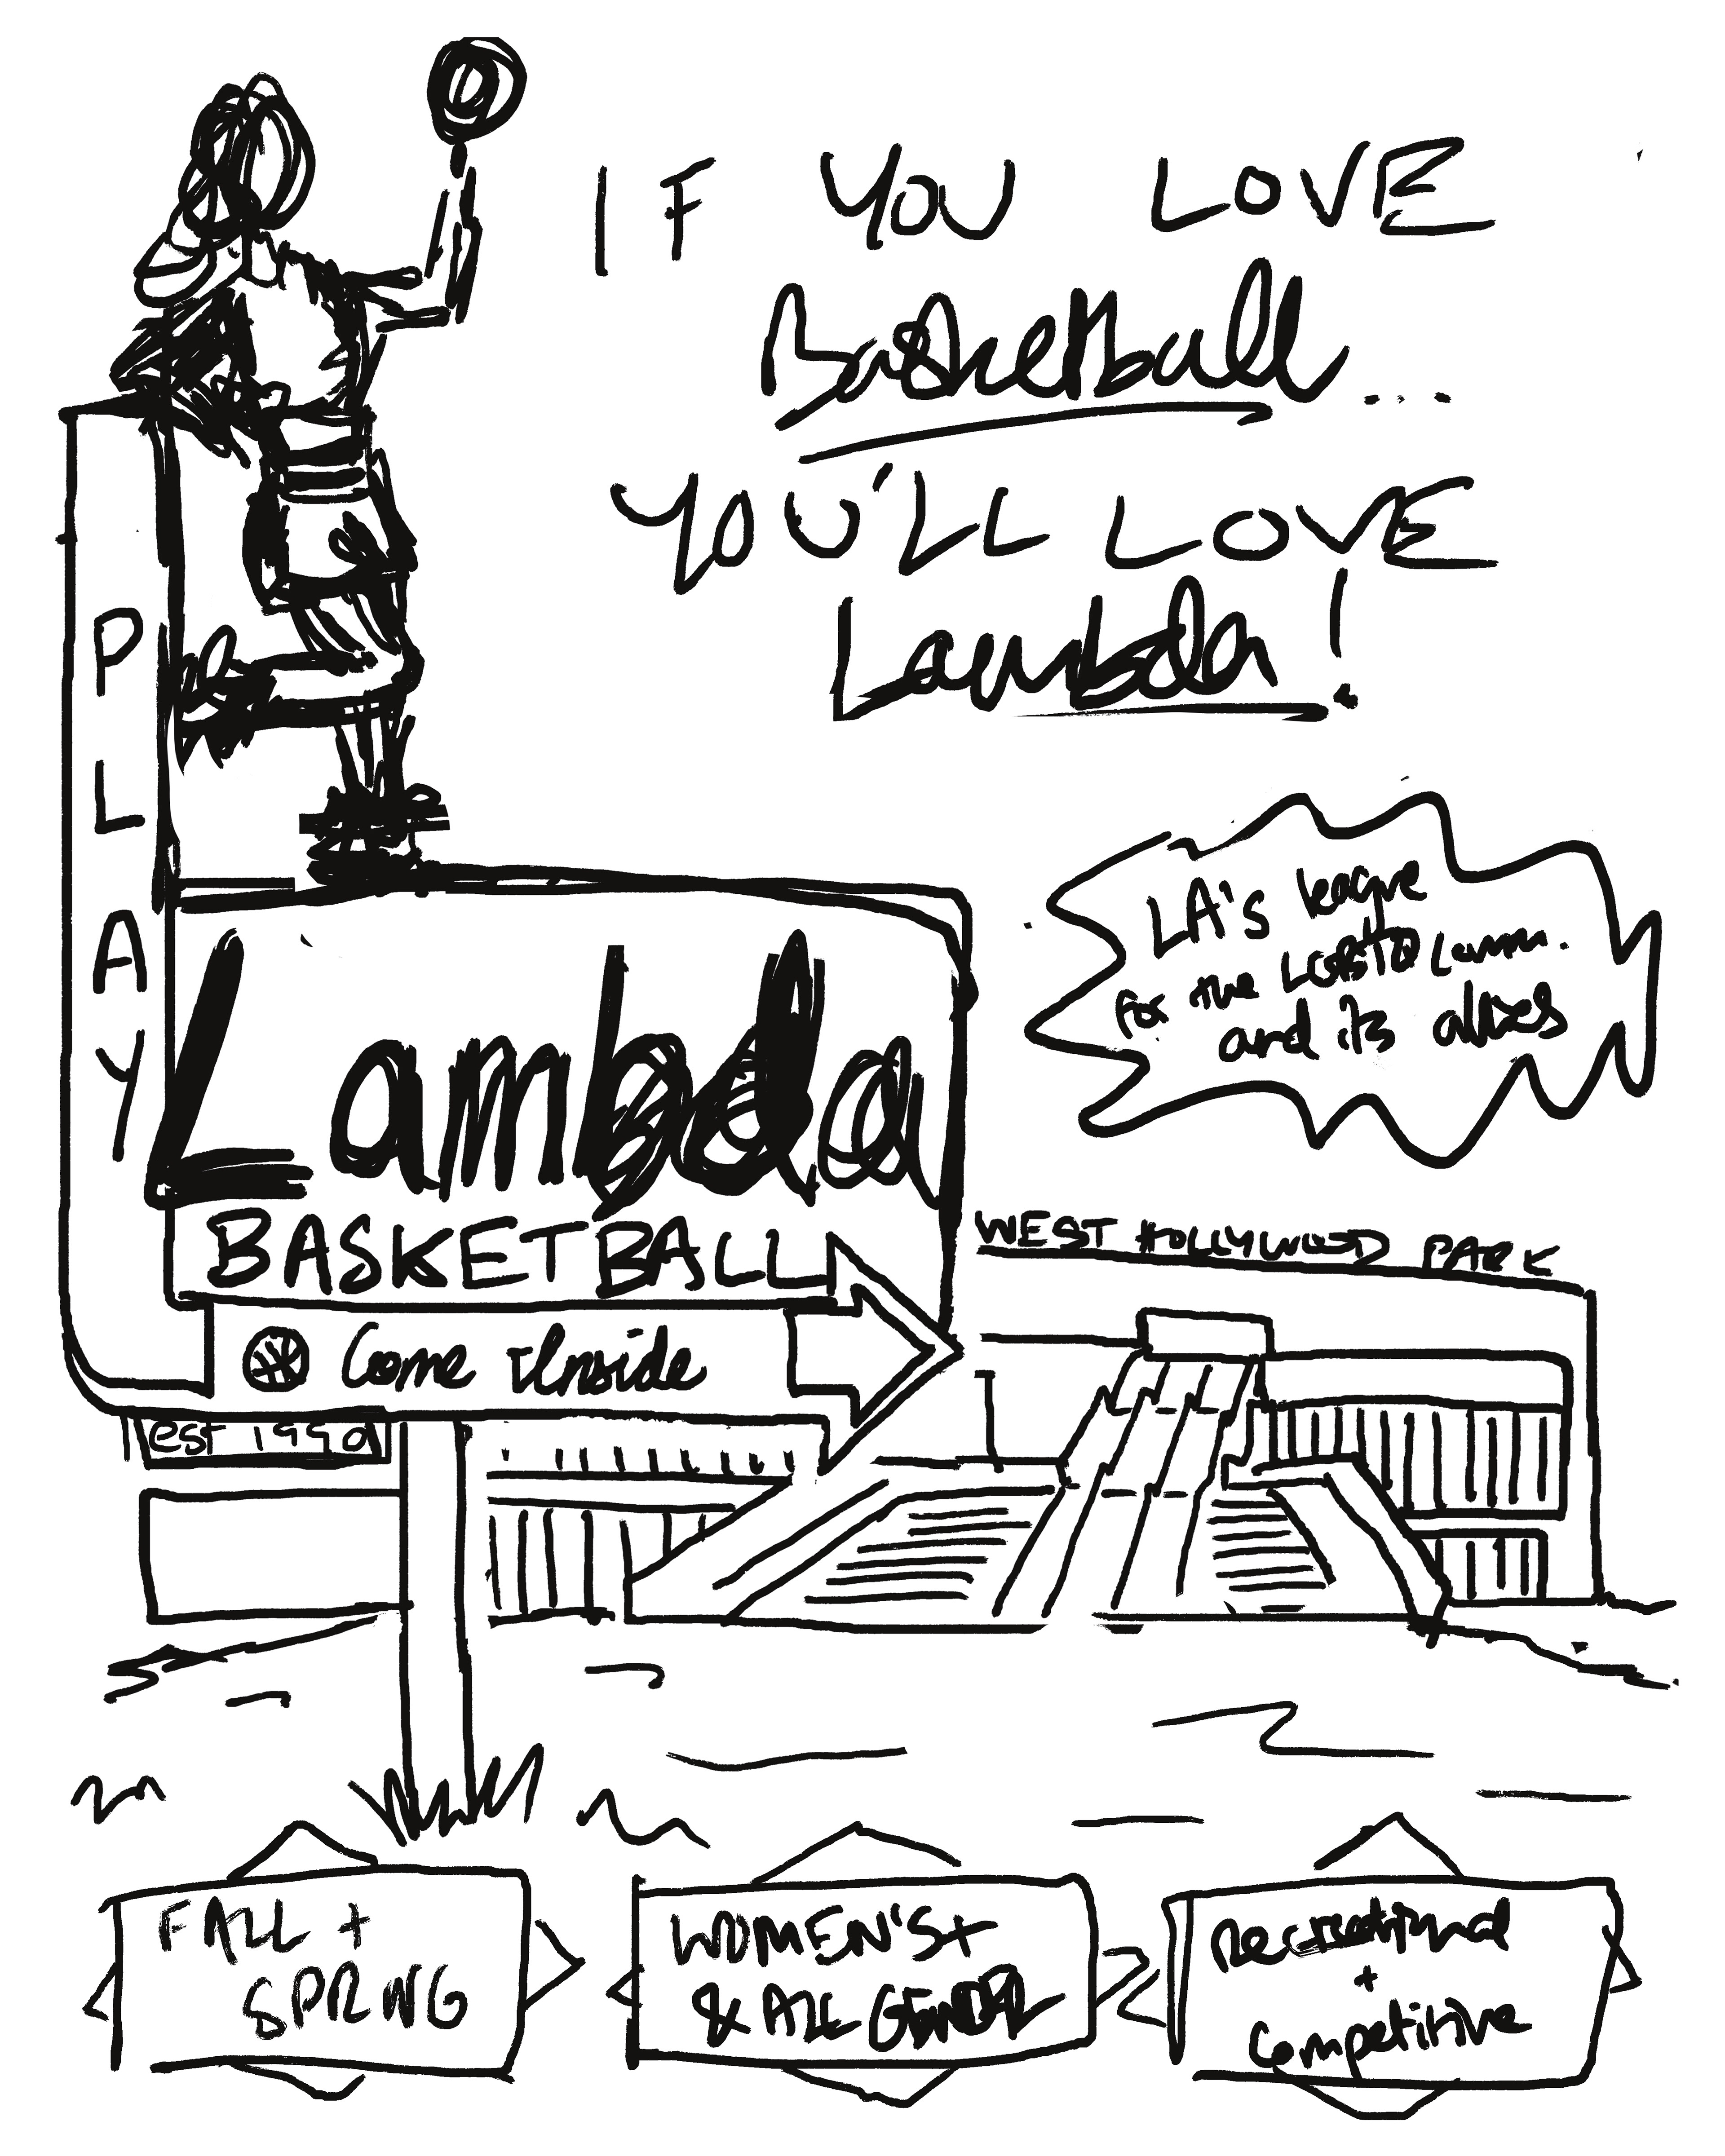 IF YOU LOVE
Basketball...
YOU'LL LOVE
Lambda!
PLAY
LA's league
for the LGBTQ comm.
and its allies
Lambda
BASKETBALL
WEST HOLLYWOOD PARK
Come Inside
est 1990
FALL +
SPRING
WOMEN'S+
& ALL GENDER
Recreational
+
Competitive